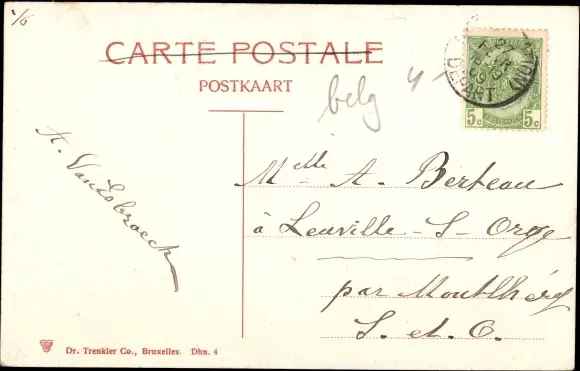 1/6
CARTE POSTALE
POSTKAART
belg
4
5c 5c
DEPART
A. VanEsbroeck
Mlle A. Berteau
à Leuville-S-Orge
par Montlhéry
S. et O.
Dr. Trenkler Co., Bruxelles. Dhn. 4